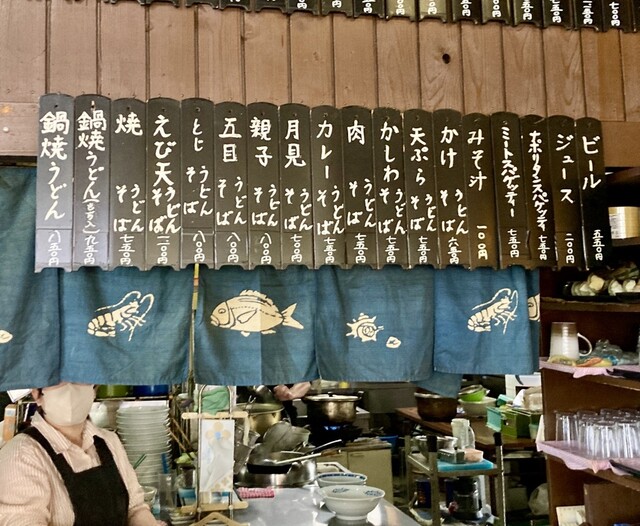 ビール 五五〇円
ジュース 二〇〇円
ナポリタンスパゲッティ 七五〇円
ミートスパゲッティー 七五〇円
みそ汁 一〇〇円
かけ うどん そば 六五〇円
天ぷら うどん そば 七五〇円
かしわ うどん そば 七五〇円
肉 うどん そば 七五〇円
カレー うどん そば 七五〇円
月見 うどん そば 七〇〇円
親子 うどん そば 八〇〇円
五目 うどん そば 八〇〇円
とじ うどん そば 八〇〇円
えび天 うどん そば
焼 うどん そば 七五〇円
鍋焼うどん(もち入) 九五〇円
鍋焼うどん 八五〇円